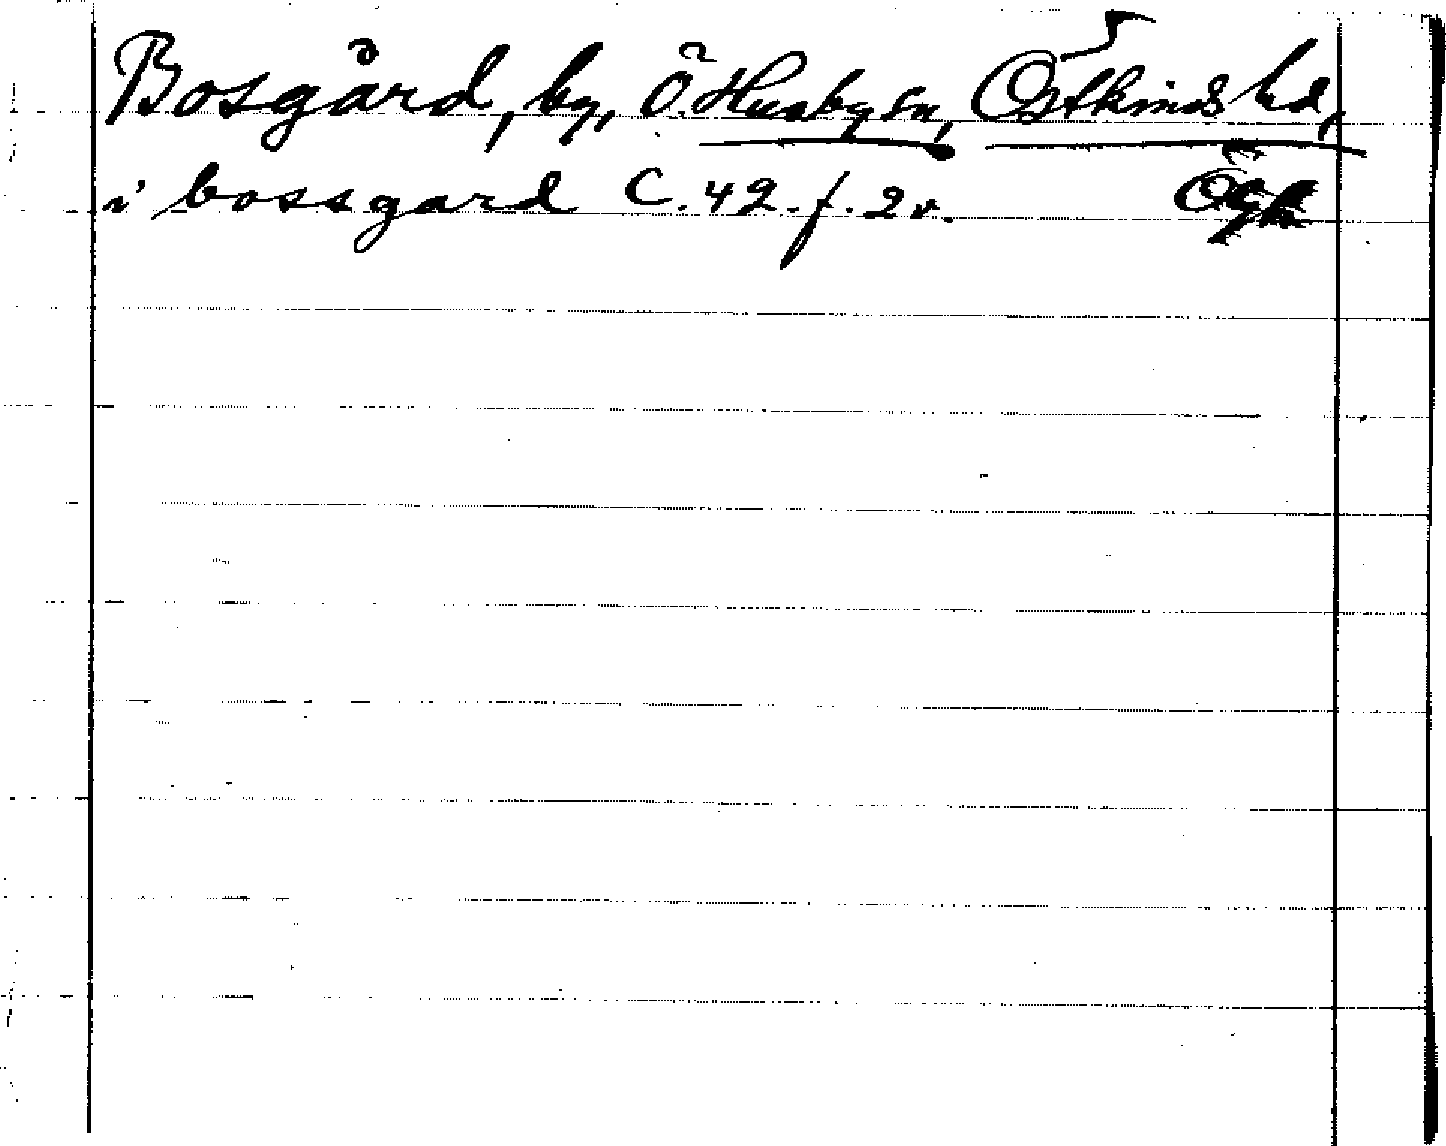 Bosgård, by, Ö. Husby sn, Östkinds hd,
i bossgard C. 42. f. 2 v. Ögl